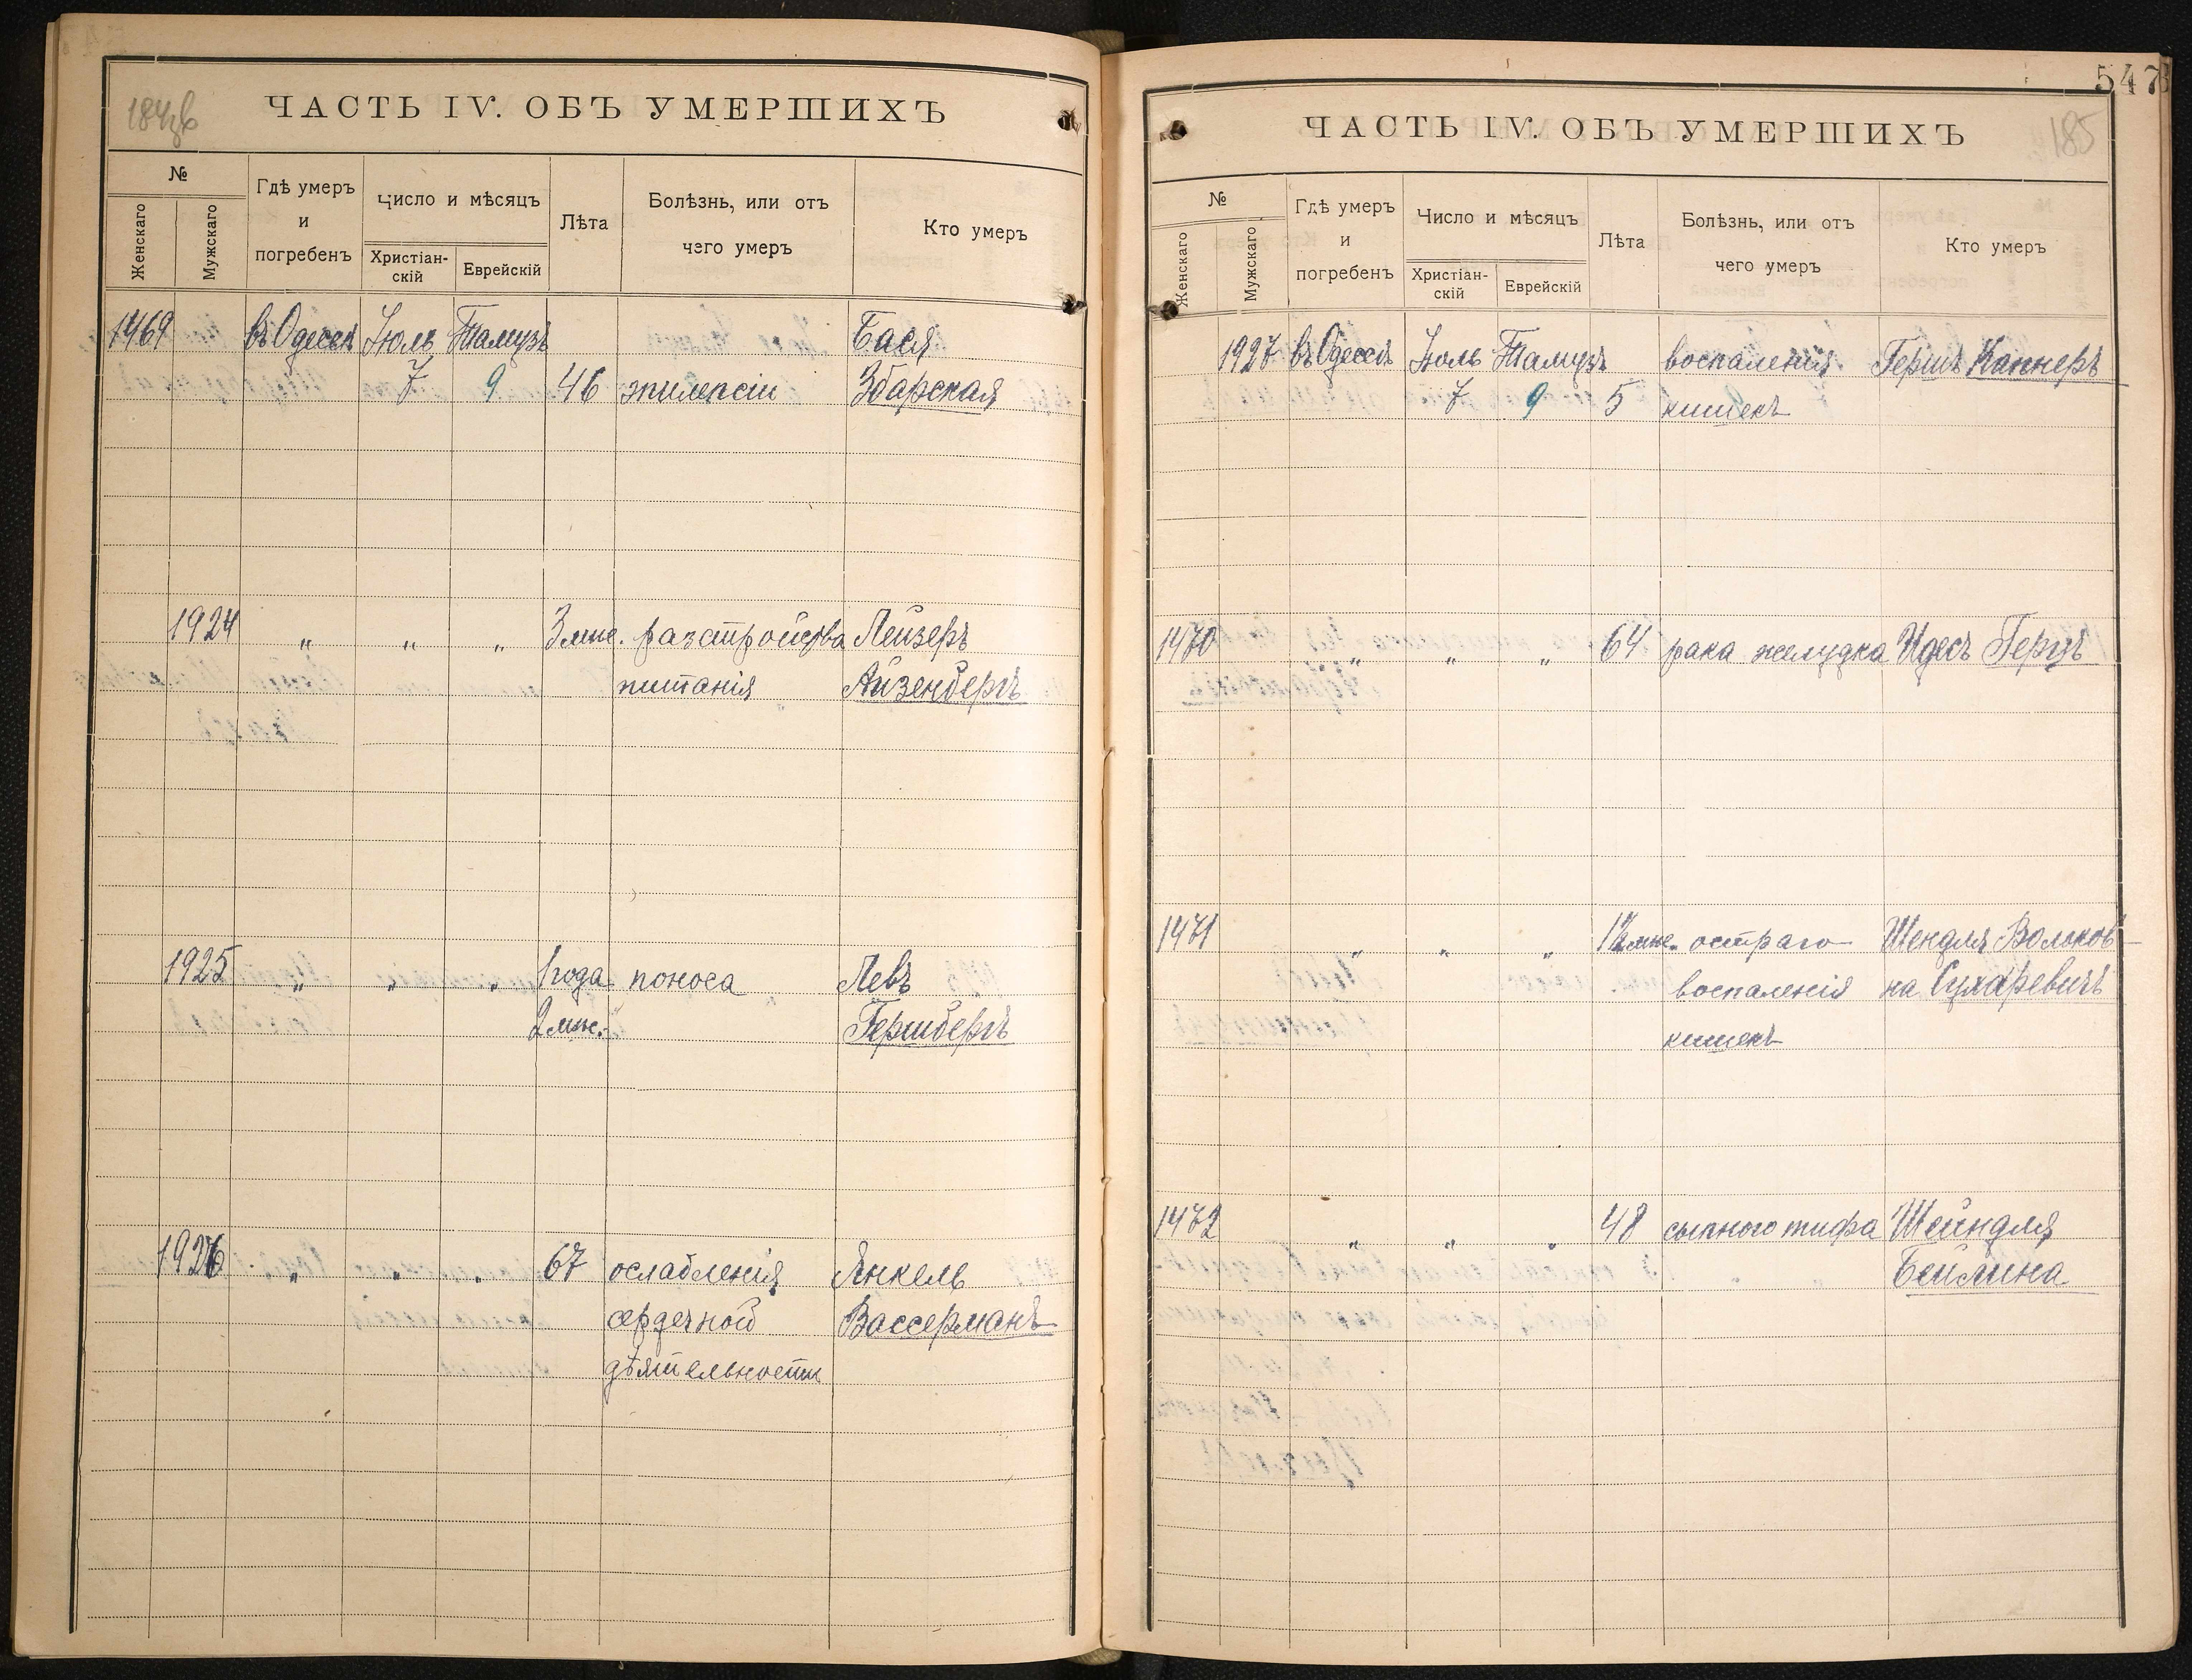 184об
ЧАСТЬ IV. ОБЪ УМЕРШИХЪ
№
Женскаго
Мужскаго
Гдѣ умеръ
и
погребенъ
Число и мѣсяцъ
Христіан-
скій
Еврейскій
Лѣта
Болѣзнь, или отъ
чего умеръ
Кто умеръ
1469 въ Одессѣ Іюль Тамузъ Бася
7 9 46 эпилепсіи Збарская
1924 " " " 3 мѣс. разстройства Лейзеръ
питанія Айзенбергъ
1925 " " " 1 года поноса Левъ
2 мѣс. Гершбергъ
1926 " " " 67 ослабленія Янкель
сердечной Вассерманъ
дѣятельности
547
185
ЧАСТЬ IV. ОБЪ УМЕРШИХЪ
№
Женскаго
Мужскаго
Гдѣ умеръ
и
погребенъ
Число и мѣсяцъ
Христіан-
скій
Еврейскій
Лѣта
Болѣзнь, или отъ
чего умеръ
Кто умеръ
1927 въ Одессѣ Іюль Тамузъ воспаленія Гершъ Каннеръ
7 9 5 кишекъ
1470 " " " 64 рака желудка Идесъ Герцъ
1471 " " " мѣс. остраго Шендля Волоков-
воспаленія на Сухаревичъ
кишекъ
1472 " " " 48 сыпного тифа Шейндля
Бейлина